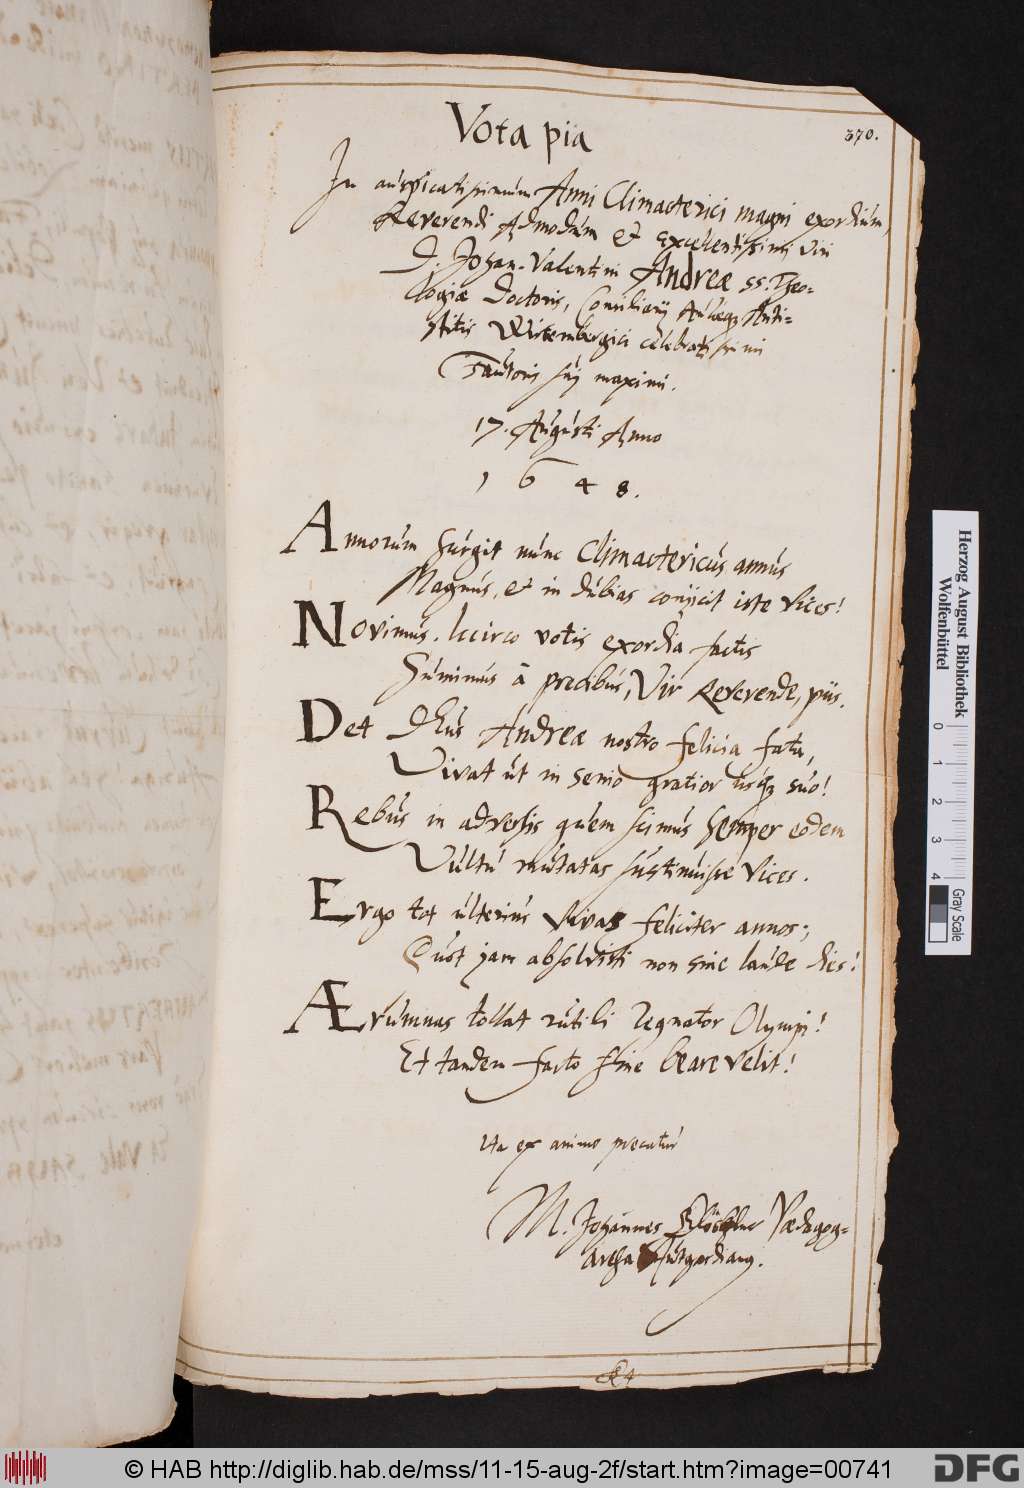 370.
Vota pia
In auspicatissimum Anni Climacterici magni exordium,
Reverendi Admodùm et excellentissimi viri
D. Johan-Valentini Andreæ SS. Theo-
logiæ Doctoris, Consiliarij Aulicq; Anti=
stitis Wirtembergici celebratissimi
Fautoris sui maximi.
17. Augusti Anno
1648.
Annorum surgit nunc Climactericus annus
Magnus, et in dubias conijcit iste vices!
Novimus. Iccirco votis exordia factis
Sumimus â precibus, Vir Reverende, piis.
Det DEus Andreæ nostro felicia fata,
Vivat ut in senio gratior usq; suo!
Rebus in adversis quem scimus semper eodem
Vultu mutatas sustinuisse vices.
Ergo tot ulterius vivas feliciter annos;
Quot jam absolvisti non sine laude dies!
Ærumnas tollat rutili regnator Olympi!
Et tandem facto fine beare velit!
Ita ex animo precatur
M. Johannes Pædagog-
archa
Herzog August Bibliothek
Wolfenbüttel
0 1 2 3 4
Gray Scale
© HAB http://diglib.hab.de/mss/11-15-aug-2f/start.htm?image=00741
DFG